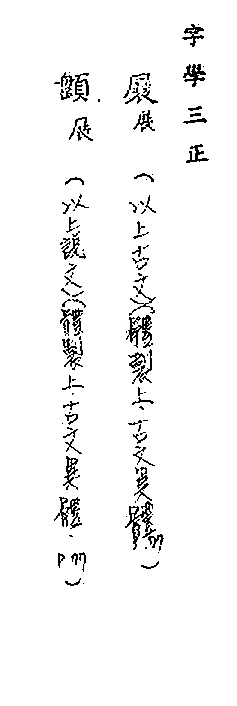 字學三正
展 展 （以上古文）（體製上．古文異體．
展 （以上說文）（體製上．古文異體．